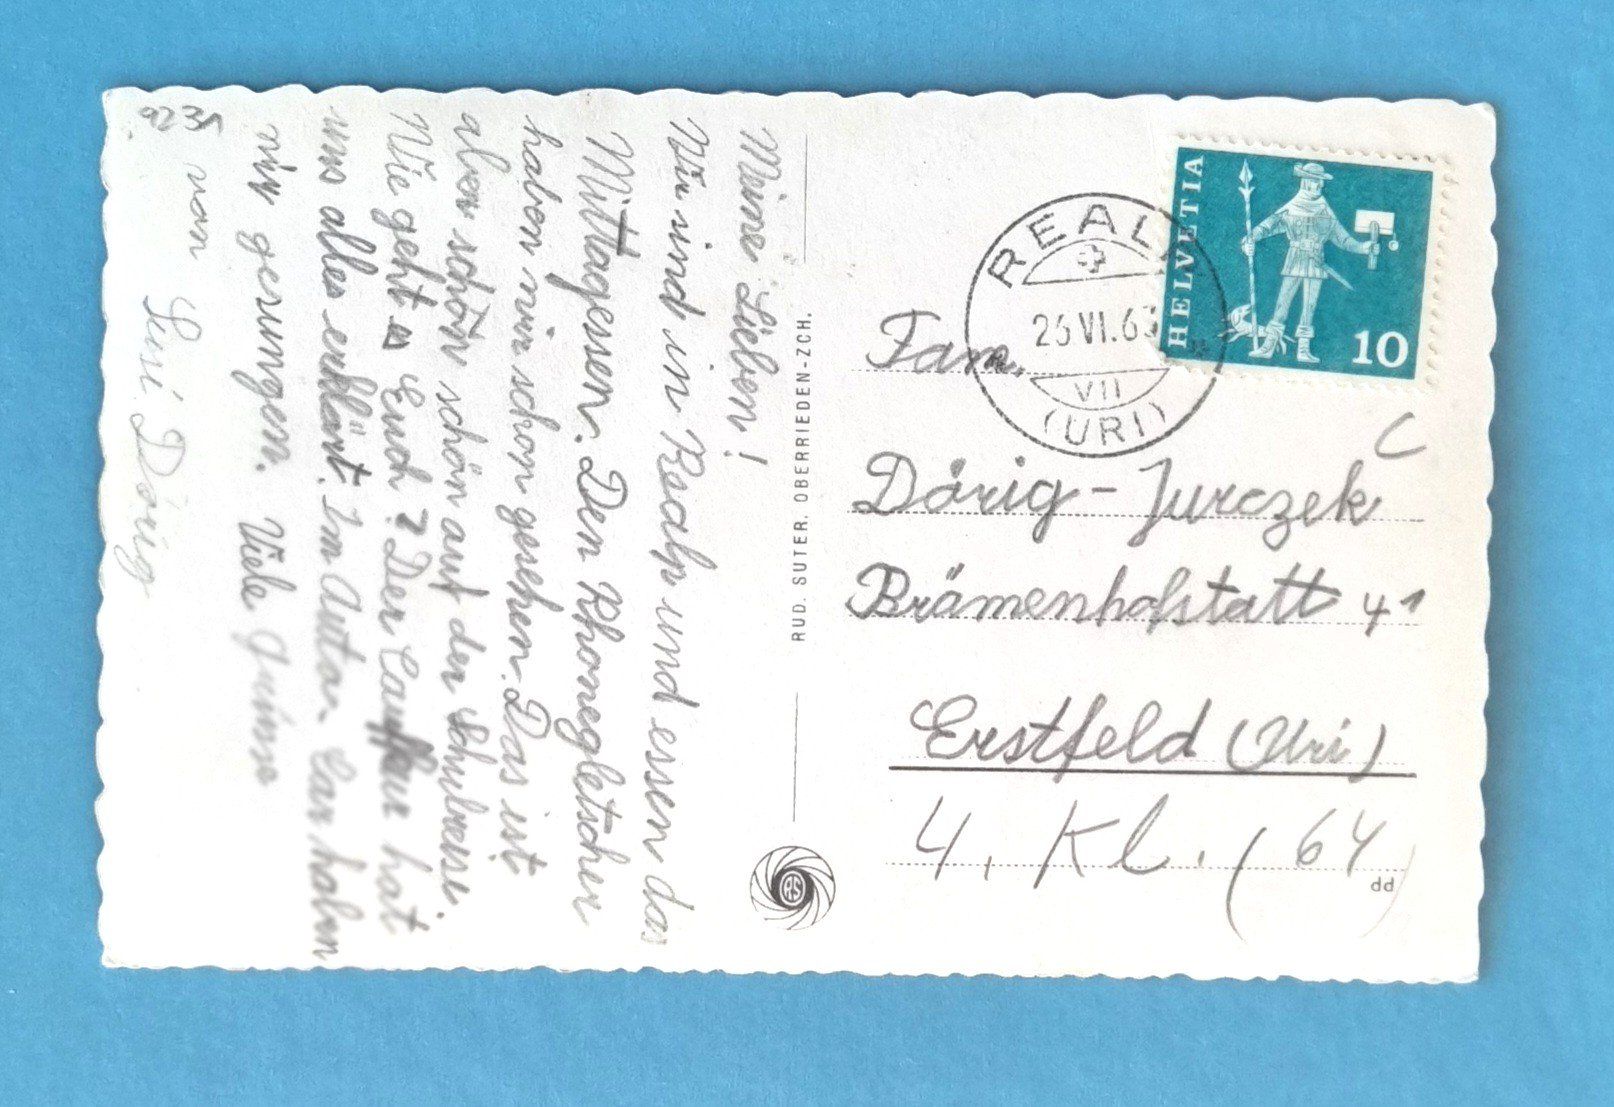 9231
Meine Lieben!
Wir sind in Realp und essen das
Mittagessen. Den Rhonegletscher
haben wir schon gesehen. Das ist
aber schön schön auf der Schulreise.
Wie geht es Euch? Der Cauffeur hat
uns alles erklärt. Im Auto-Car haben
wir gesungen. Viele Grüsse
von Susi Dörig
RUD. SUTER, OBERRIEDEN-ZCH.
RS
REALP
26.VI.63
VII
(URI)
HELVETIA
10
Fam.
Dörig-Jurczek
Brämenhofstatt 41
Erstfeld (Uri)
4. Kl. (64)
dd